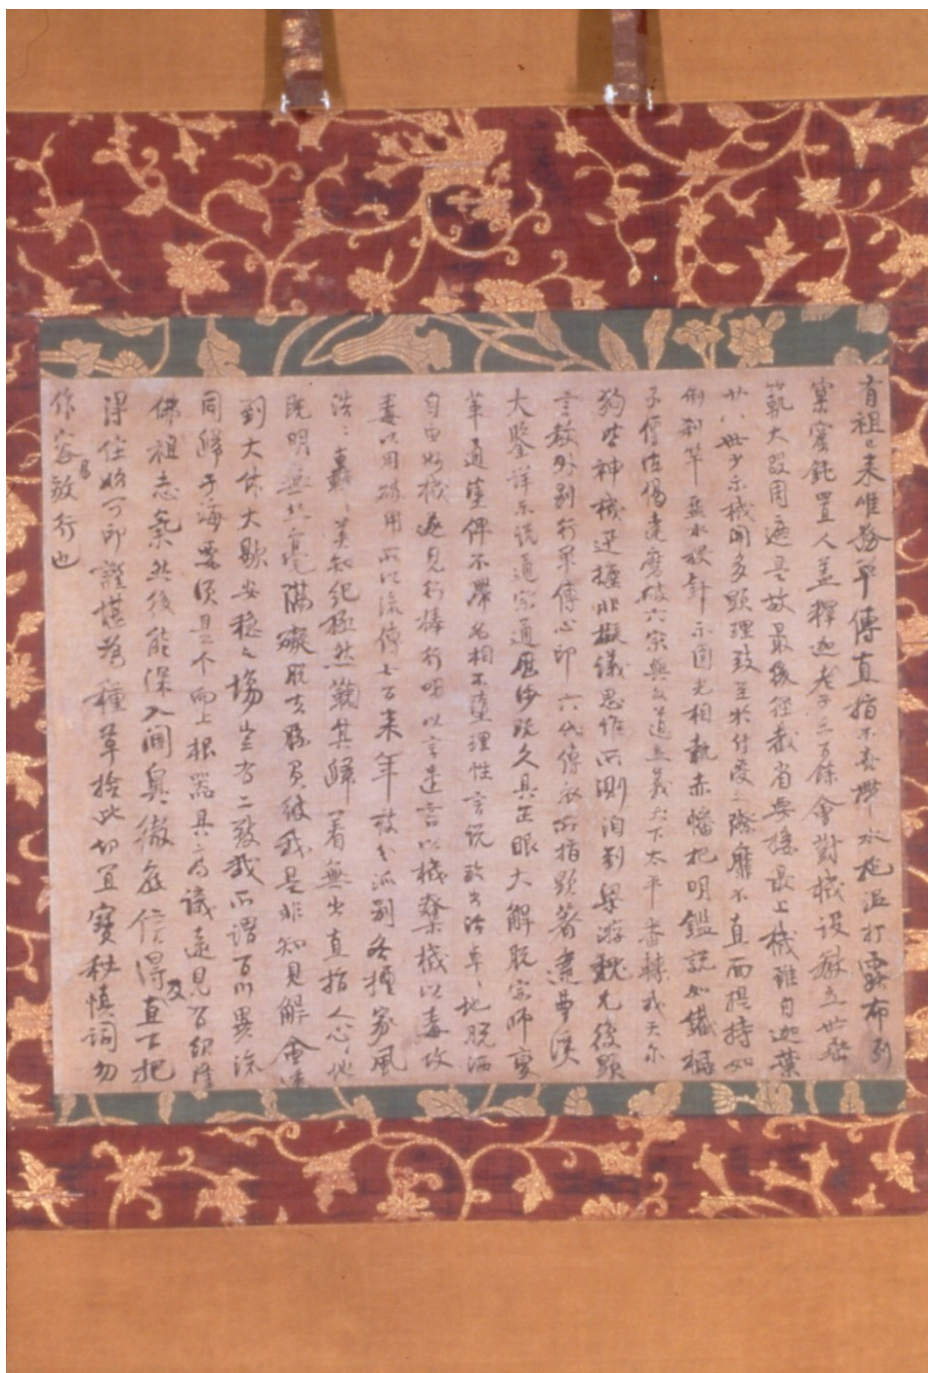 有祖已来唯務單傳直指不喜帶水拖泥打露布列
窠窟鈍置人蓋釋迦老子三百餘會對機設教立世垂
範大段周遮是故最後徑截省要接最上機雖自迦葉
廿八世少示機關多顯理致至於付受之際靡不直面提持如
倒刹竿盋水投針示圓光相執赤幡把明鑑說如鐵橛
子傳法偈達磨破六宗與外道立義天下太平番轉我天尔
狗皆神機迅捷非擬議思惟所測洎到梁游魏尤復顯
言教外別行單傳心印六代傳衣所指顯著逮曹溪
大鑒詳示說通宗通歷涉既久具正眼大解脫宗師變
革通塗俾不滯名相不墮理性言說放出活卓〻地脫洒
自由妙機遂見行棒行喝以言遣言以機奪機以毒攻
毒以用破用所以流傳七百来年枝分派別各擅家風
浩〻轟〻莫知紀極然鞠其歸著無出直指人心〻地
既明無絲毫隔礙脫去勝負彼我是非知見解會透
到大休大歇安穩之場豈有二致哉所謂百川異流
同歸于海要須是个向上根器具高識遠見有紹隆
佛祖志氣然後能深入閫奧徹底信得及直下把
得住始可印證堪為種草捨此切宜寶秘慎詞勿
作容易放行也